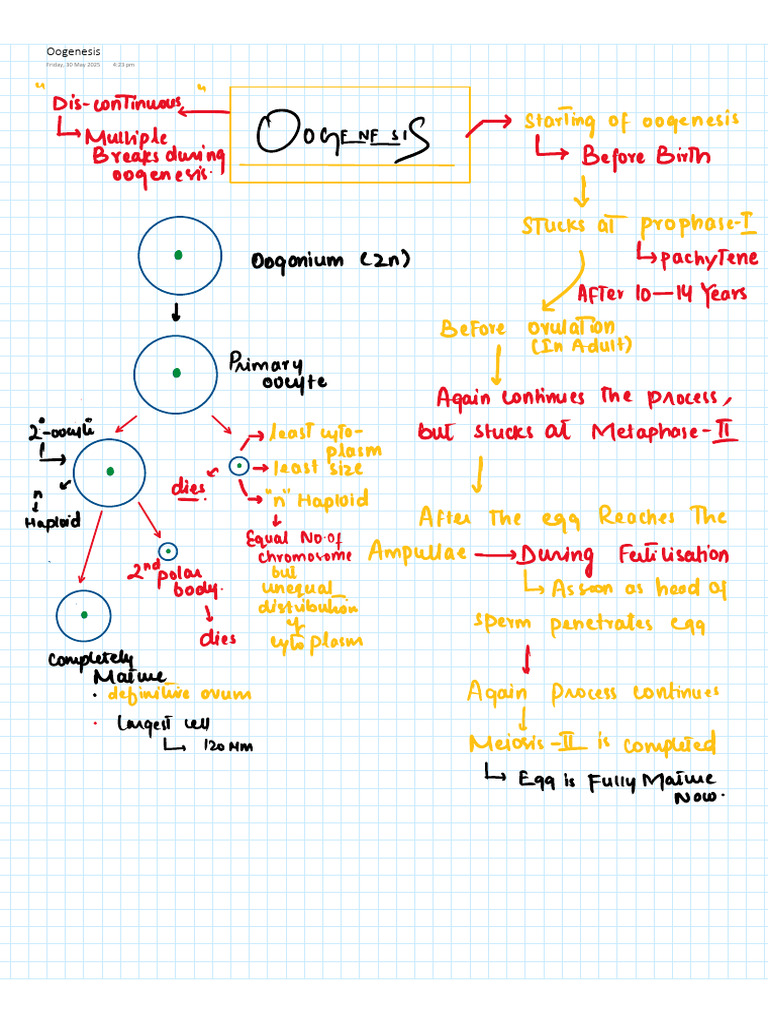 Oogenesis
Friday, 30 May 2025 4:23 pm
"Dis-continuous"
Multiple
Breaks during
oogenesis.
OOGENESIS
Starting of oogenesis
Before Birth
Stucks at prophase-I
pachytene
After 10-14 Years
Before ovulation
(In Adult)
Again continues the process,
but stucks at Metaphase-II
After the egg Reaches The
Ampullae
During Fertilisation
As soon as head of
sperm penetrates egg
Again process continues
Meiosis-II is completed
Egg is Fully Mature
Now.
Oogonium (2n)
Primary
oocyte
2°-oocyte
n
Haploid
dies
least cyto-
plasm
least size
"n" Haploid
Equal No. of
chromosome
but
unequal
distribution
of
cytoplasm
2nd polar
body.
dies
completely
Mature
• definitive ovum
• Largest cell
120 μm